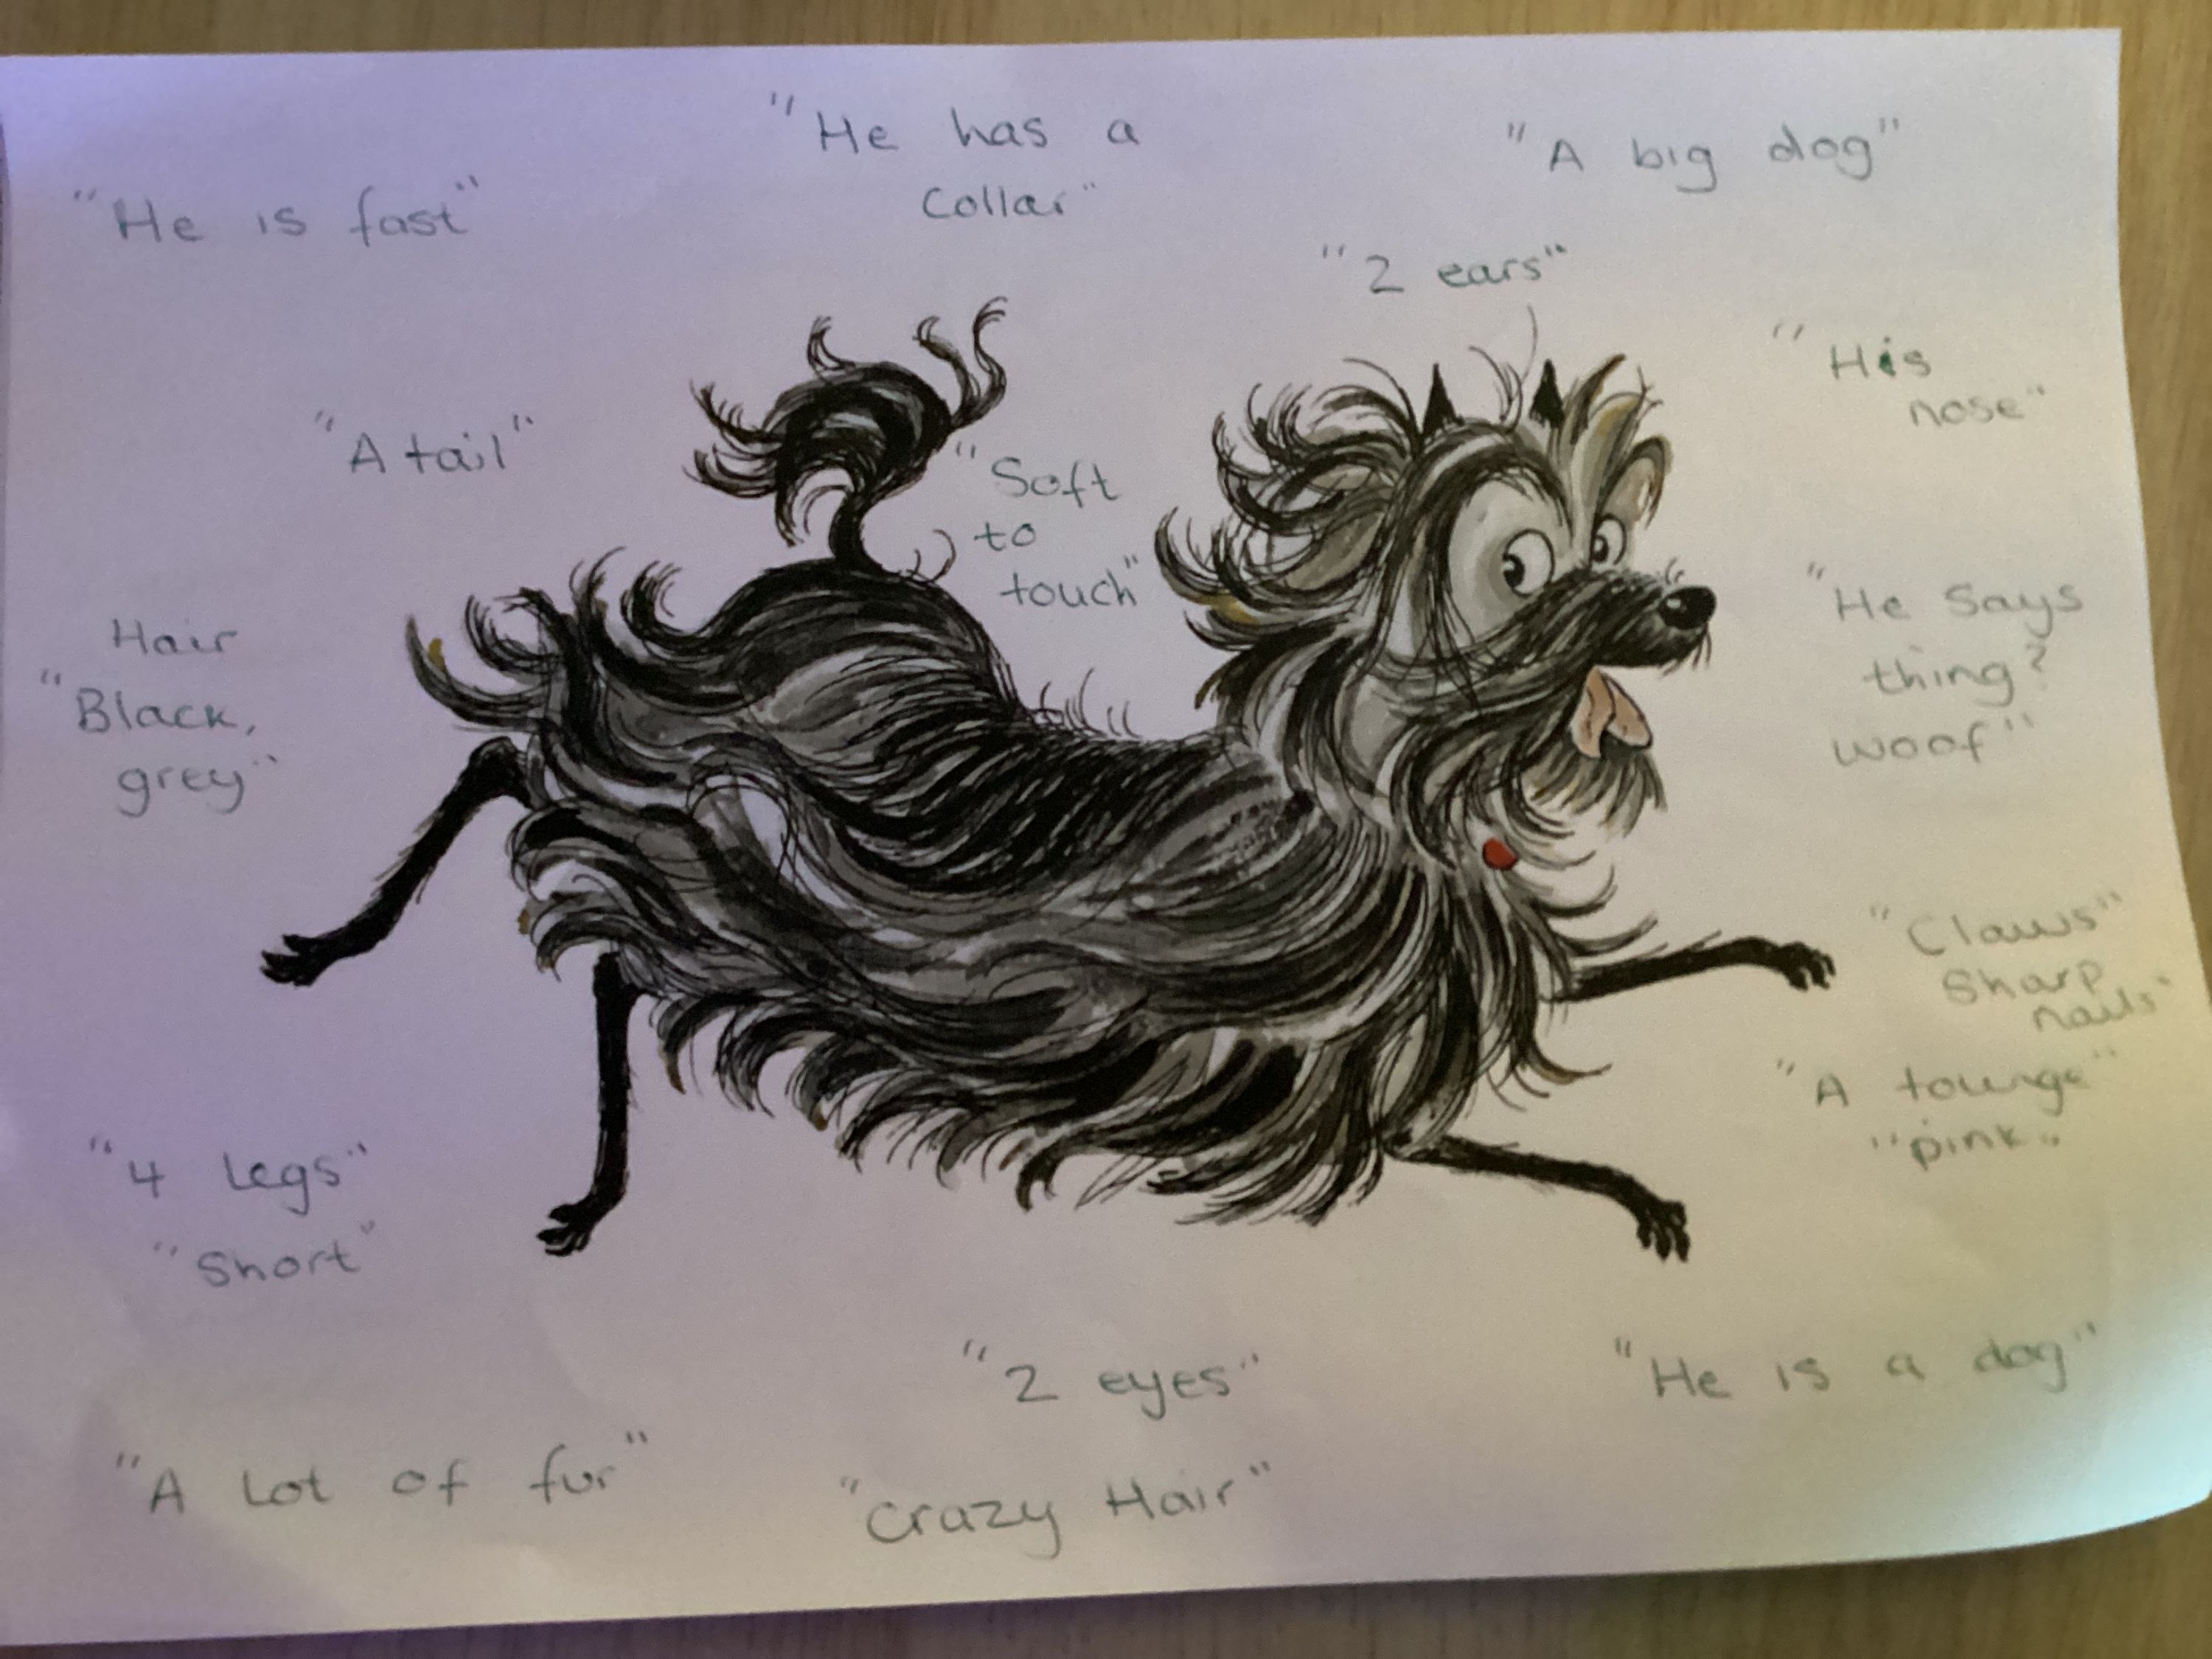 "He has a
collar"
"A big dog"
"He is fast"
"2 ears"
"His
nose"
"A tail"
"Soft
to
touch"
Hair
"Black,
grey"
"He says
thing?
woof"
"Claws"
Sharp
nails"
"A tounge"
"pink"
"4 legs"
"Short"
"2 eyes"
"He is a dog"
"A Lot of fur"
"Crazy Hair"